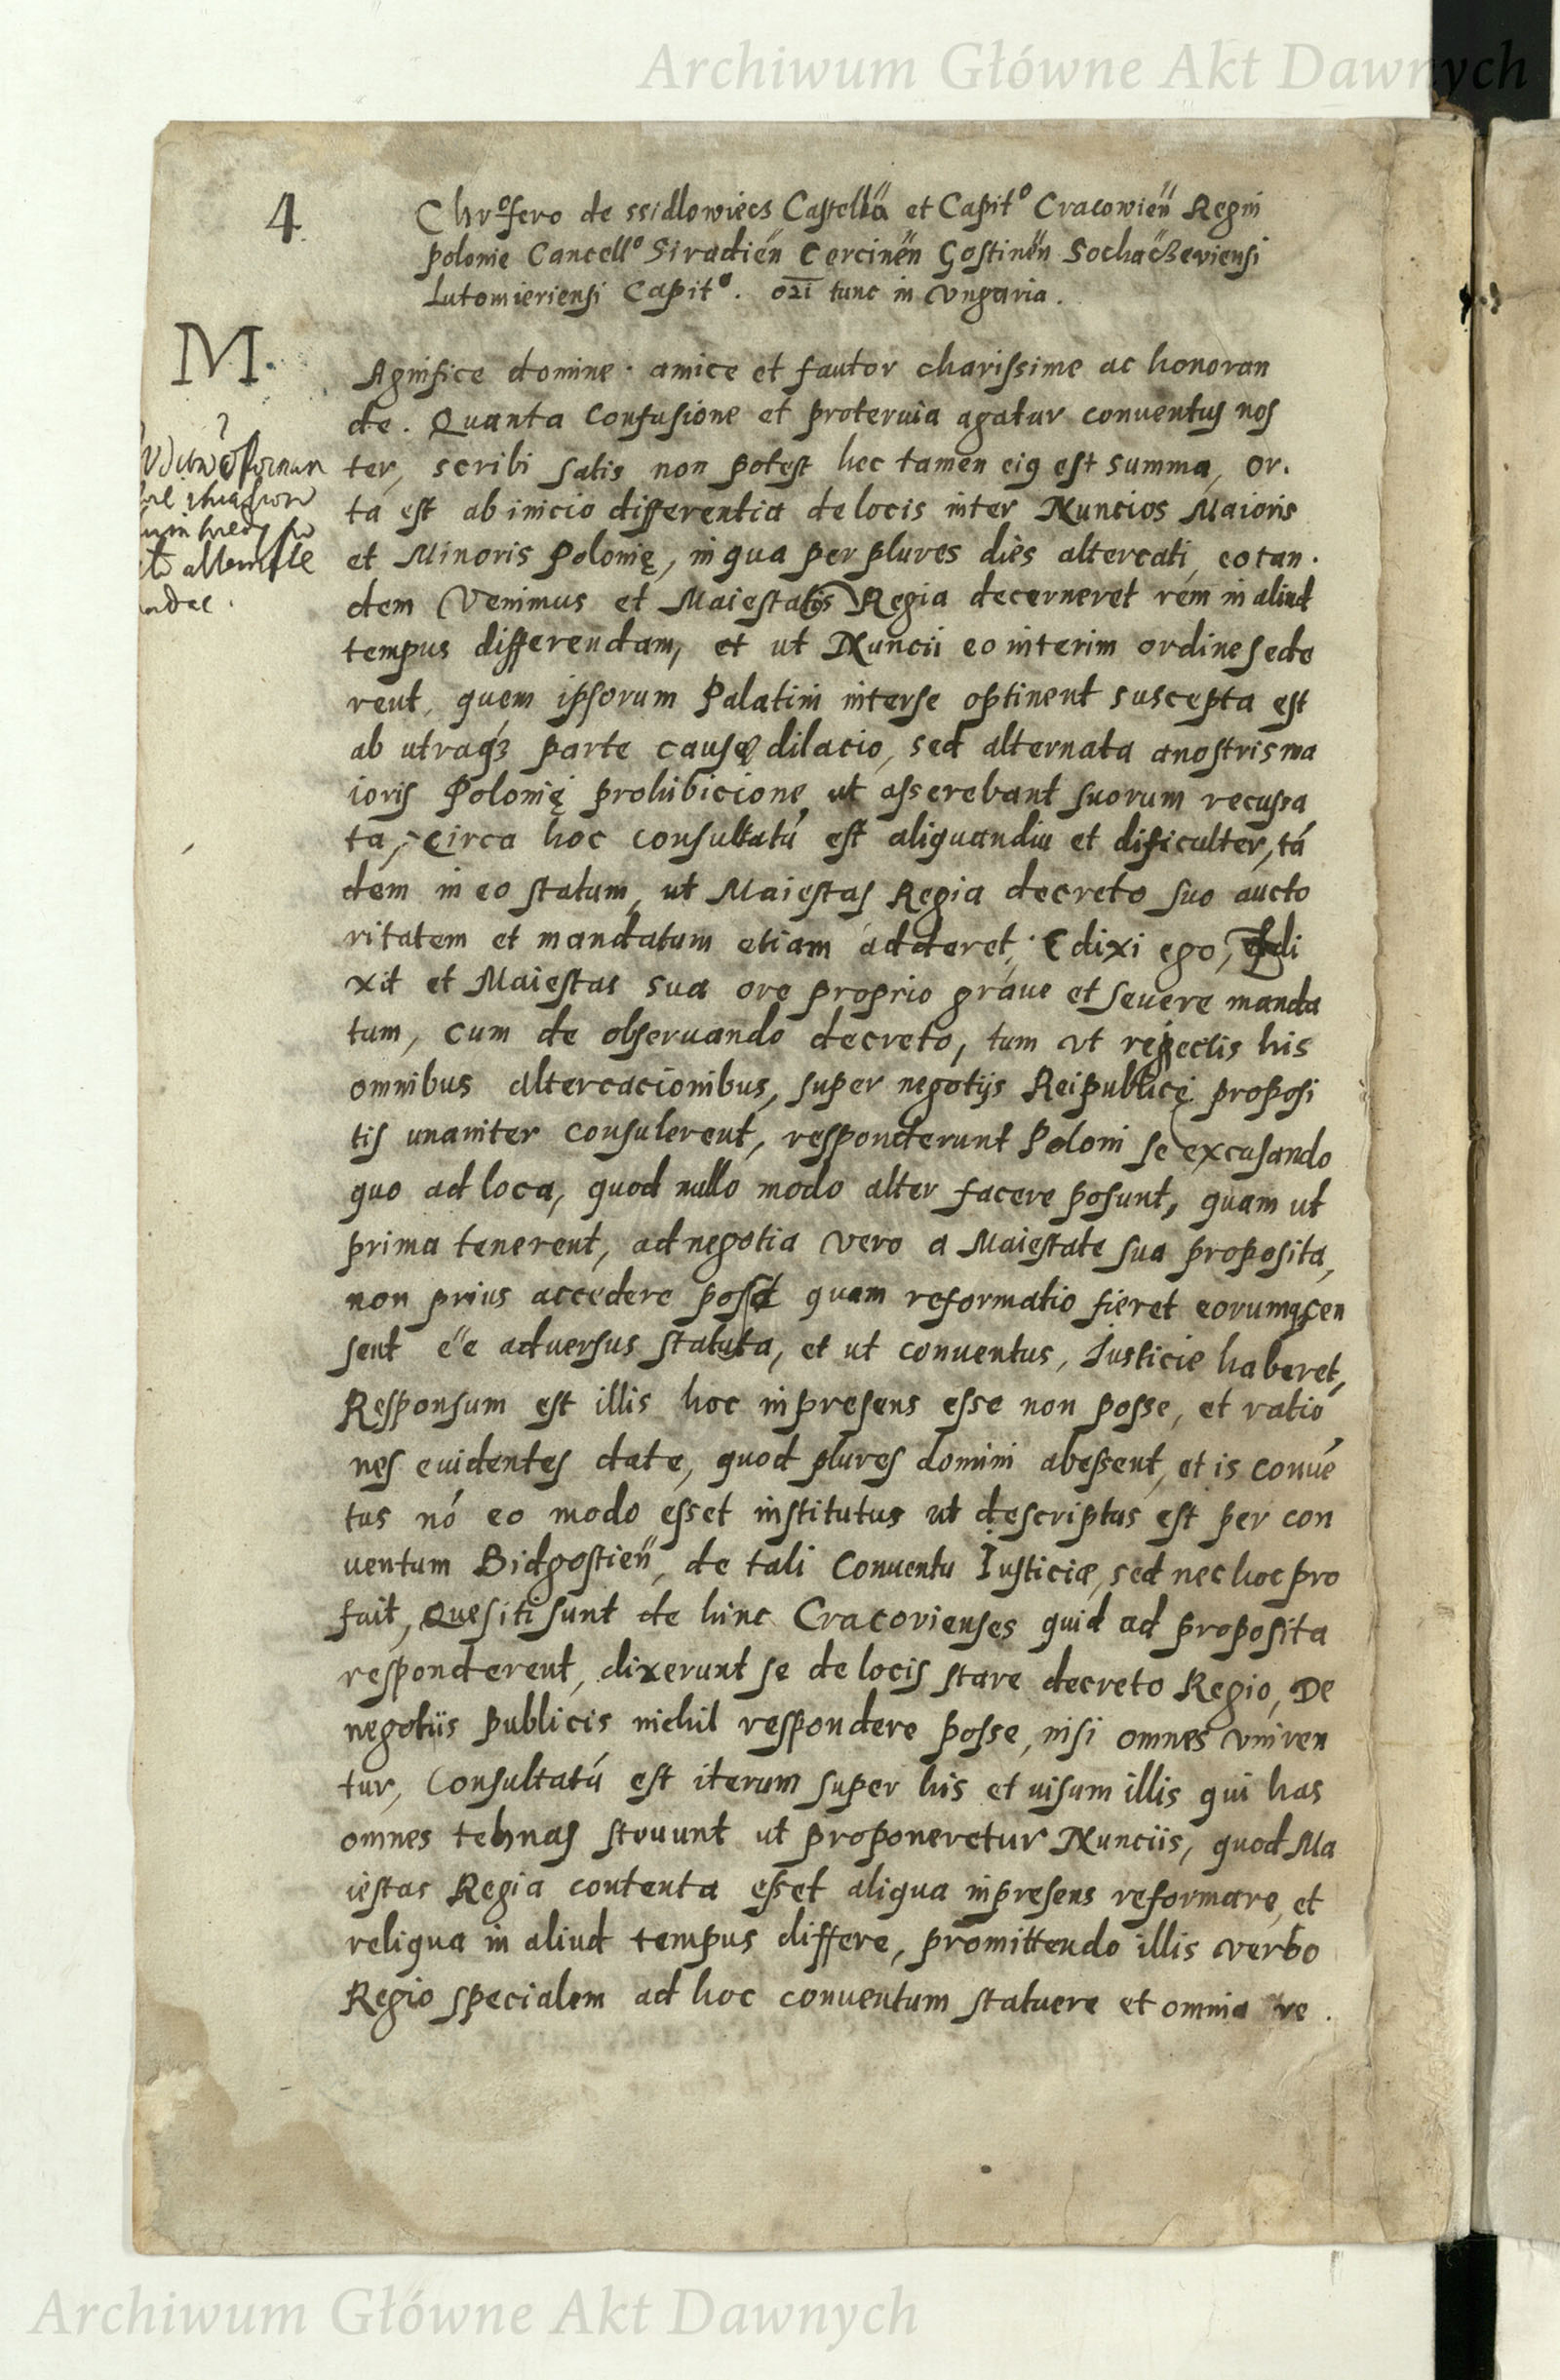 Archiwum Główne Akt Dawnych
4
Chrofero de ssidlowiecz Castellā et Capit° Cracowien Regni
polonie Cancell° Siradien Cercinen Gostinen Sochaczeviensi
Lutomieriensi Capit°. tunc in vngaria.
M.
Agnifice domine. amice et fautor charissime ac honoran
de. Quanta confusione et proteruia agatur conuentus nos
ter, scribi satis non potest hec tamen eiꝯ est summa, or.
ta est ab inicio differentia de locis inter Nuncios Maioris
et Minoris Polonię, in qua per plures dies altercati, eo tan.
dem Venimus et Maiestatis Regia decerneret rem in aliud
tempus differendam, et ut Nuncii eo interim ordine sede
rent, quem ipsorum Palatini inter se optinent suscepta est
ab utraqꝫ parte causę dilacio, sed alternata a nostris ma
ioris Polonię prohibicione ut asserebant suorum recusa
ta, Circa hoc consultatū est aliquandiu et dificulter, tā
dem in eo statum, ut Maiestas Regia decreto suo aucto
ritatem et mandatum etiam adderet, dixi ego, di
xit et Maiestas sua ore proprio graue et seuere manda
tum, cum de obseruando decreto, tum vt reiectis his
omnibus altercacionibus, super negotijs Reipublicę proposi
tis unaniter consulerent, responderunt Poloni se excusando
quo ad loca, quod nullo modo alter facere posunt, quam ut
prima tenerent, ad negotia vero a Maiestate sua proposita,
non prius accedere quam reformatio fieret eorum cen
sent ēē aduersus statuta, et ut conuentus, Iusticie haberet,
Responsum est illis hoc in presens esse non posse, et ratio
nes euidentes date, quod plures domini abessent, et is conuē
tus nō eo modo esset institutus ut descriptus est per con
uentum Bidgostien, de tali Conuentu Iusticiæ, sed nec hoc pro
fuit, Quesiti sunt de hinc Cracovienses quid ad proposita
responderent, dixerunt se de locis stare decreto Regio, De
negotiis publicis nichil respondere posse, nisi omnes vniren
tur, Consultatū est iterum super his et uisum illis qui has
omnes tehnas struunt ut proponeretur Nunciis, quod Ma
iestas Regia contenta esset aliqua in presens reformare, et
reliqua in aliud tempus differe, promittendo illis verbo
Regio specialem ad hoc conuentum statuere et omnia re.
Archiwum Główne Akt Dawnych